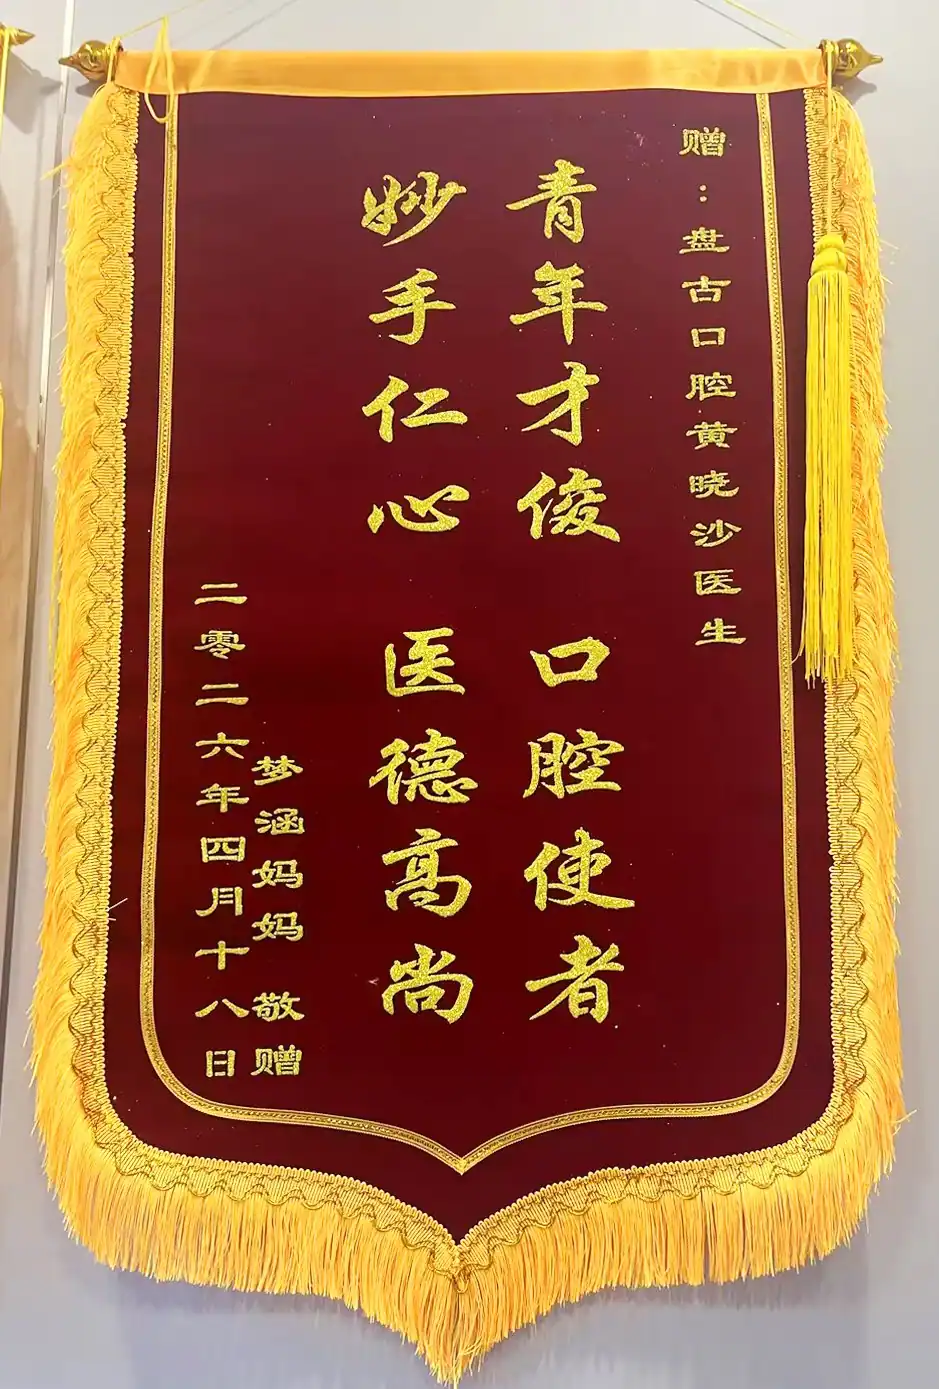 赠：盘古口腔黄晓沙医生
青年才俊 口腔使者
妙手仁心 医德高尚
梦涵妈妈 敬赠
二零二六年四月十八日